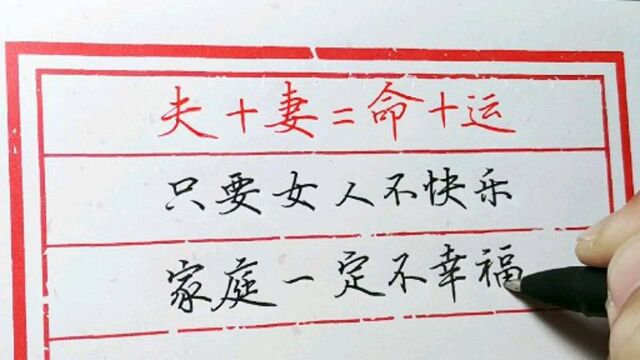 夫+妻=命+运
只要女人不快乐
家庭一定不幸福